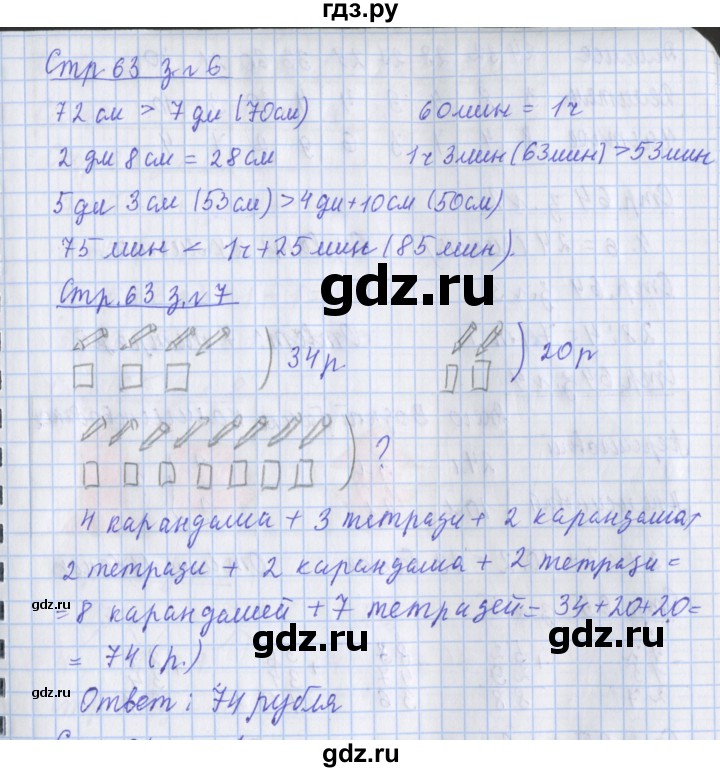 гдз.ру
Стр 63 з.№6
72 см > 7 дм (70см)
60мин = 1ч
2 дм 8см = 28см
1ч 3мин (63мин) > 53мин
5дм 3см (53см) > 4дм+10см (50см)
75 мин < 1ч+25мин (85мин).
gdz.ru
Стр. 63 з.№7
34р
20р
?
4 карандаша + 3 тетради + 2 карандаша+
2 тетради + 2 карандаша + 2 тетради =
gdz.ru
= 8 карандашей + 7 тетрадей = 34+20+20=
gdz.ru
gdz.ru
= 74 (р.)
gdz.ru
gdz.ru
Ответ: 74 рубля
gdz.ru